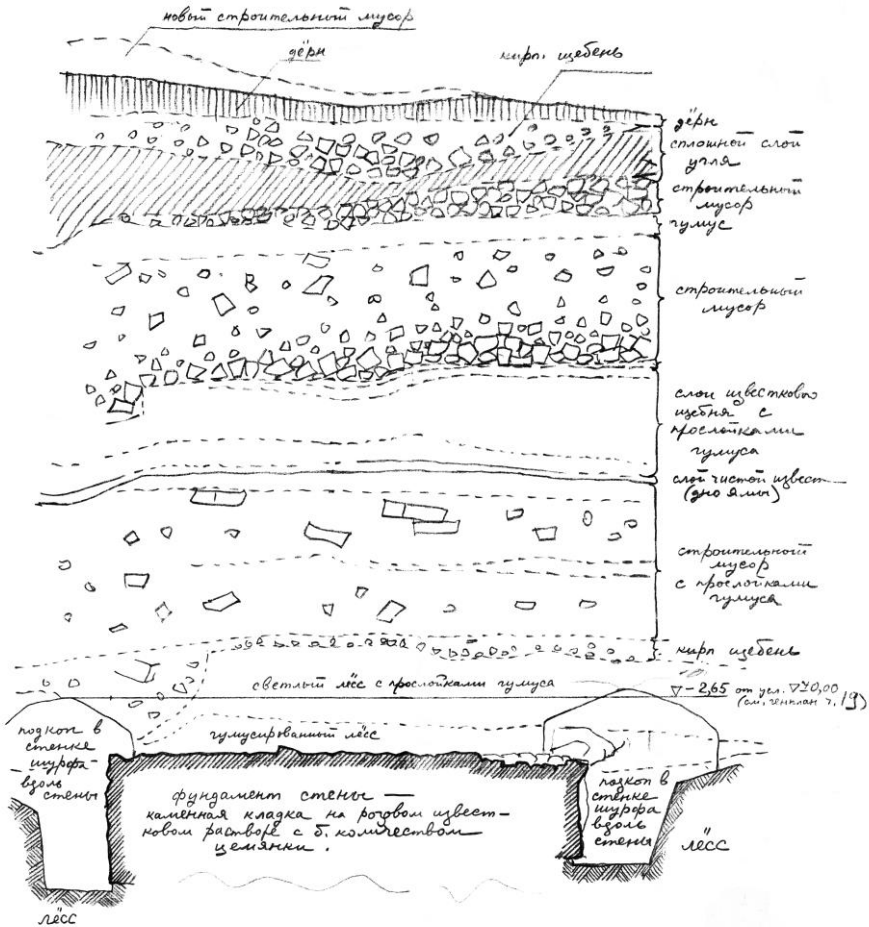 новый строительный мусор
дёрн
кирп. щебень
дёрн
сплошной слой
угля
строительный
мусор
гумус
строительный
мусор
слои известково
щебня с
прослойками
гумуса
слой чистой извест—
(дно ямы)
строительный
мусор
с прослойками
гумуса
кирп щебень
светлый лёсс с прослойками гумуса
▽-2,65 от усл. ▽±0,00
(см. генплан ч. 19)
гумусированный лёсс
подкоп в
стенке
шурфа
вдоль
стены
фундамент стены —
каменная кладка на розовом извест-
ковом растворе с б. количеством
цемянки.
подкоп в
стенке
шурфа
вдоль
стены
лёсс
лёсс